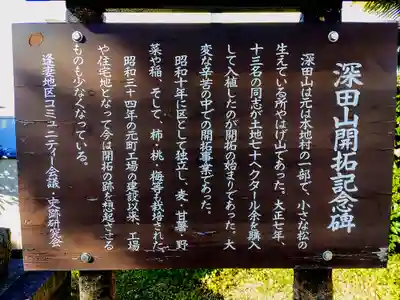 深田山開拓記念碑
深田山は元は本地村の一部で、小さな松の
生えている所やはげ山であった。大正七年、
十三名の同志が土地七十ヘクタール余を購入
して入植したのが開拓の始まりであった。大
変な辛苦の中での開拓事業であった。
昭和十年に区として独立し、麦、甘薯、野
菜や稲、そして、柿・桃・梅等も栽培された。
昭和三十四年の元町工場の建設以来、工場
や住宅地となって今は開拓の跡を想起させる
ものも少なくなっている。
逢妻地区コミュニティー会議・史跡研究会